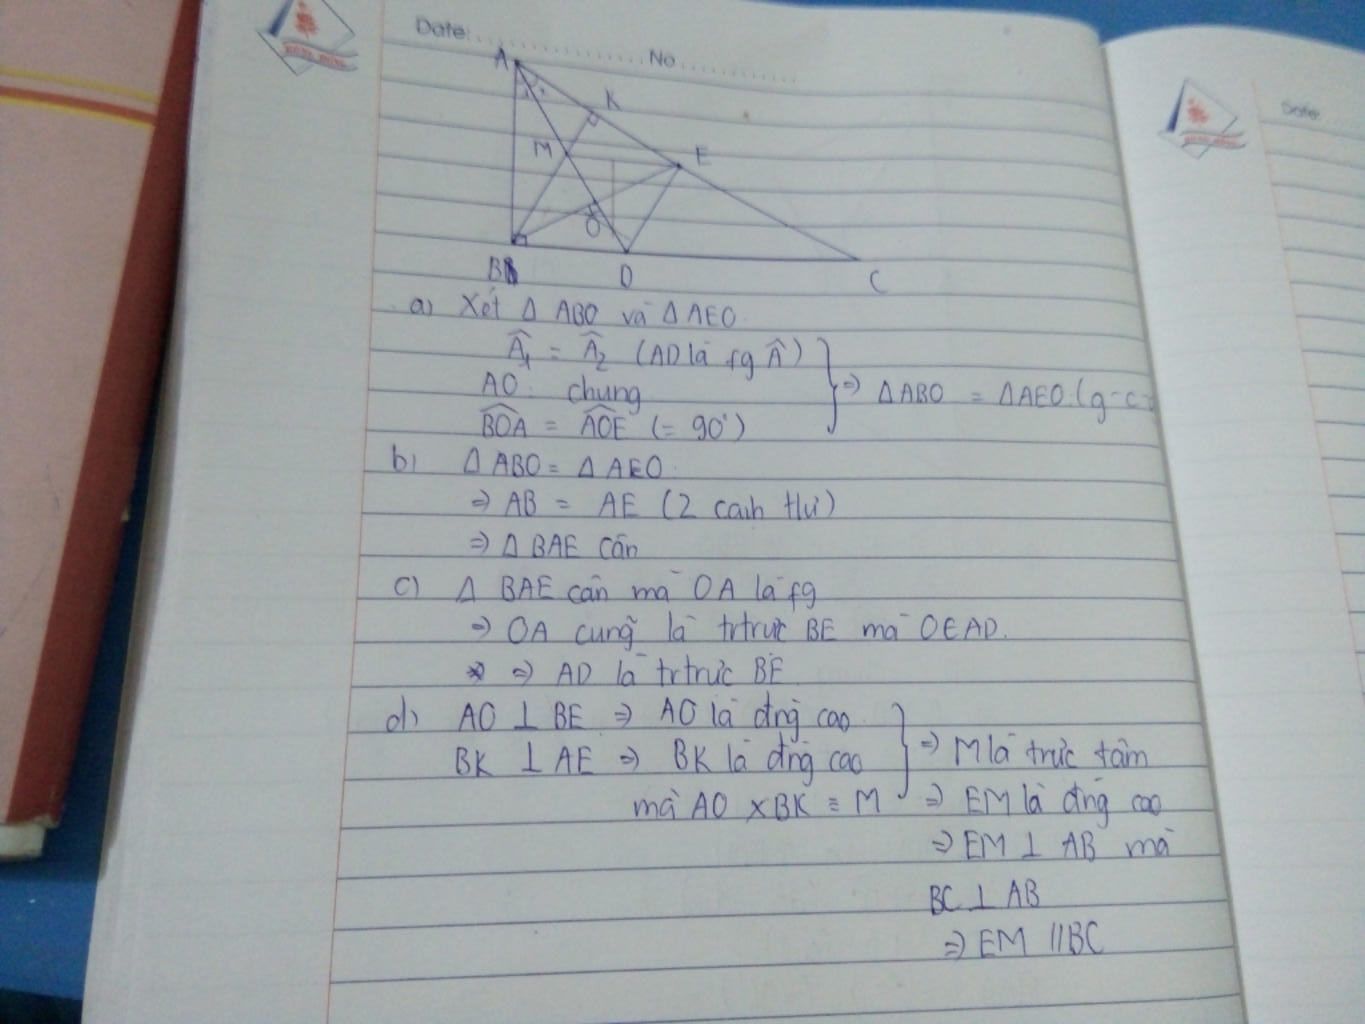 Date: ............... No ...............
A
K
M
E
O
B
D
C
a) Xét Δ ABO và Δ AEO.
Â₁ = Â₂ (AD là fg Â)
AO: chung
⇒ Δ ABO = Δ AEO (g-c-
BOA = AOE (= 90°)
b) Δ ABO = Δ AEO.
⇒ AB = AE (2 cạnh tứ)
⇒ Δ BAE cân
c) Δ BAE cân mà OA là fg
⇒ OA cũng là trtrực BE mà O∈AD.
⇒ AD là trtrực BE
d) AO ⊥ BE ⇒ AO là đng cao
BK ⊥ AE ⇒ BK là đng cao
⇒ M là trực tâm
mà AO × BK ≡ M ⇒ EM là đng cao
⇒ EM ⊥ AB mà
BC ⊥ AB
⇒ EM // BC
Date